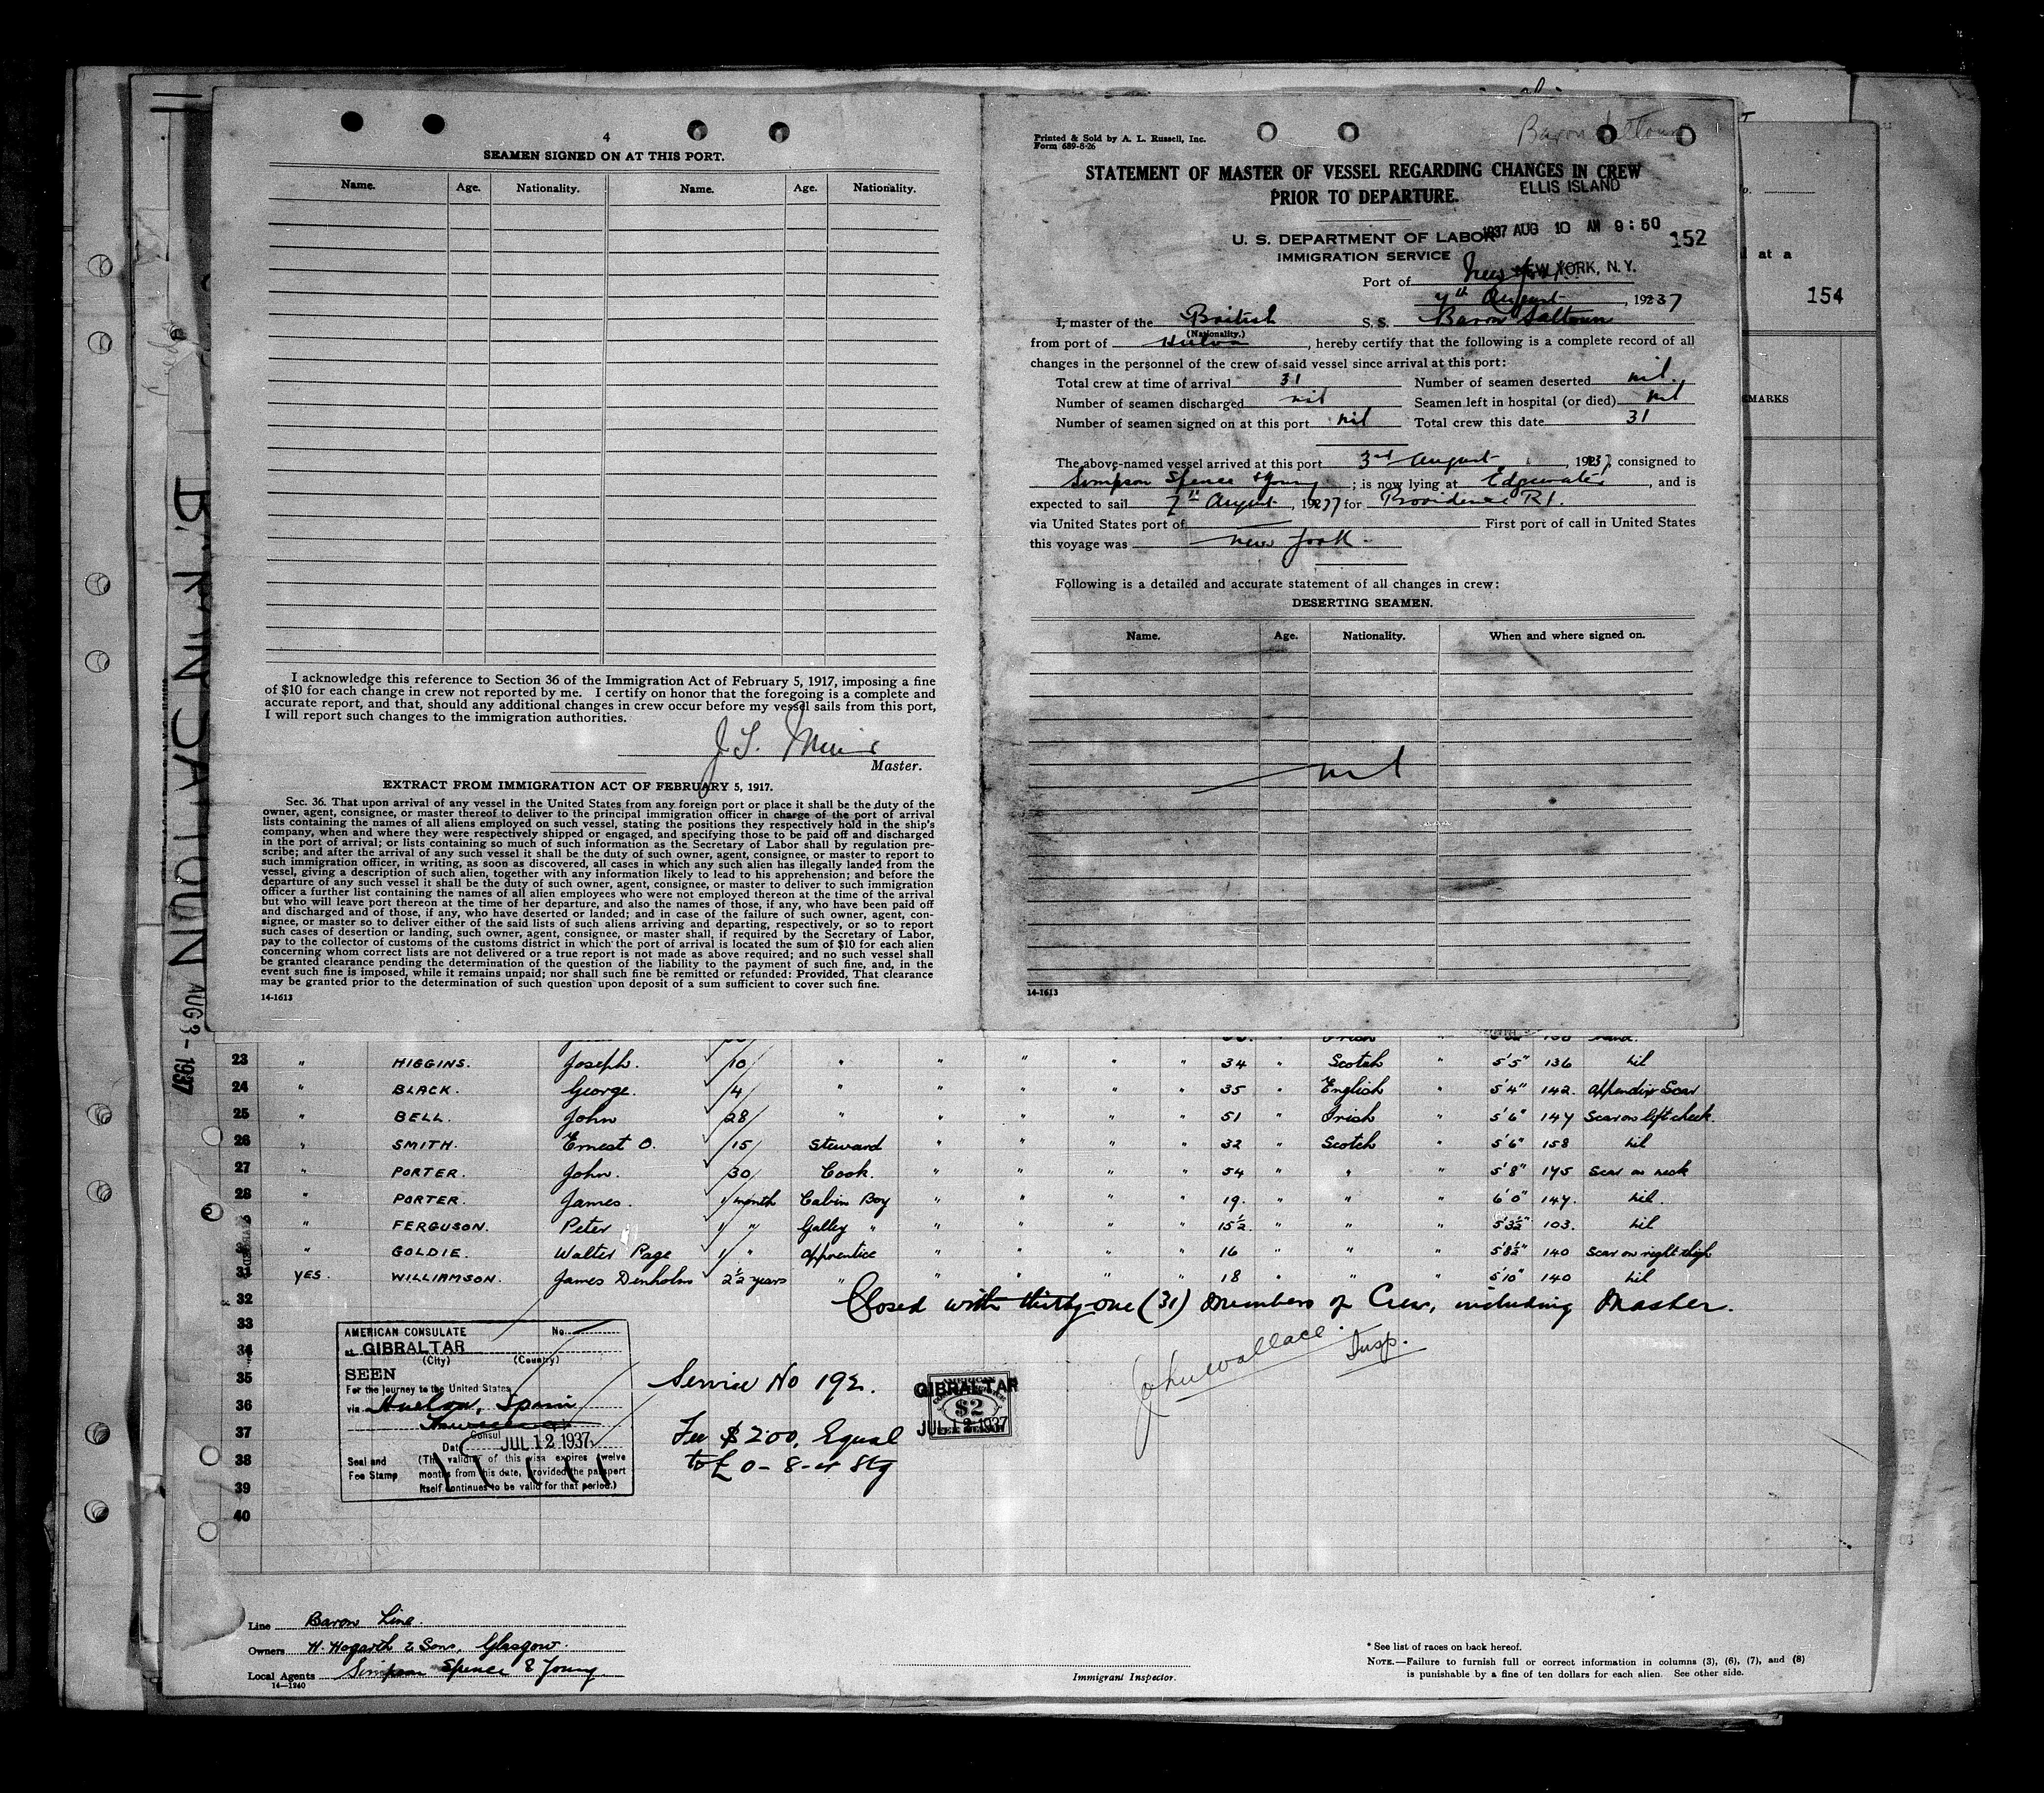 4
SEAMEN SIGNED ON AT THIS PORT.
Name. Age. Nationality. Name. Age. Nationality.
I acknowledge this reference to Section 36 of the Immigration Act of February 5, 1917, imposing a fine
of $10 for each change in crew not reported by me. I certify on honor that the foregoing is a complete and
accurate report, and that, should any additional changes in crew occur before my vessel sails from this port,
I will report such changes to the immigration authorities.
Master.
EXTRACT FROM IMMIGRATION ACT OF FEBRUARY 5, 1917.
Sec. 36. That upon arrival of any vessel in the United States from any foreign port or place it shall be the duty of the
owner, agent, consignee, or master thereof to deliver to the principal immigration officer in charge of the port of arrival
lists containing the names of all aliens employed on such vessel, stating the positions they respectively hold in the ship's
company, when and where they were respectively shipped or engaged, and specifying those to be paid off and discharged
in the port of arrival; or lists containing so much of such information as the Secretary of Labor shall by regulation pre-
scribe; and after the arrival of any such vessel it shall be the duty of such owner, agent, consignee, or master to report to
such immigration officer, in writing, as soon as discovered, all cases in which any such alien has illegally landed from the
vessel, giving a description of such alien, together with any information likely to lead to his apprehension; and before the
departure of any such vessel it shall be the duty of such owner, agent, consignee, or master to deliver to such immigration
officer a further list containing the names of all alien employees who were not employed thereon at the time of the arrival
but who will leave port thereon at the time of her departure, and also the names of those, if any, who have been paid off
and discharged and of those, if any, who have deserted or landed; and in case of the failure of such owner, agent, con-
signee, or master so to deliver either of the said lists of such aliens arriving and departing, respectively, or so to report
such cases of desertion or landing, such owner, agent, consignee, or master shall, if required by the Secretary of Labor,
pay to the collector of customs of the customs district in which the port of arrival is located the sum of $10 for each alien
concerning whom correct lists are not delivered or a true report is not made as above required; and no such vessel shall
be granted clearance pending the determination of the question of the liability to the payment of such fine, and, in the
event such fine is imposed, while it remains unpaid; nor shall such fine be remitted or refunded: Provided, That clearance
may be granted prior to the determination of such question upon deposit of a sum sufficient to cover such fine.
14-1613
Printed & Sold by A. L. Russell, Inc.
Form 689-8-26
STATEMENT OF MASTER OF VESSEL REGARDING CHANGES IN CREW
PRIOR TO DEPARTURE.
ELLIS ISLAND
1937 AUG 10 AM 9:50
152
U. S. DEPARTMENT OF LABOR
IMMIGRATION SERVICE
NEW YORK, N. Y.
Port of New York
7th August, 1937
I, master of the British S. S. Baron Saltoun
(Nationality.)
from port of Huelva, hereby certify that the following is a complete record of all
changes in the personnel of the crew of said vessel since arrival at this port:
Total crew at time of arrival 31 Number of seamen deserted nil.
Number of seamen discharged nil Seamen left in hospital (or died) nil
Number of seamen signed on at this port nil Total crew this date 31
The above-named vessel arrived at this port 3rd August, 1937, consigned to
Simpson Spence & Young; is now lying at Edgewater, and is
expected to sail 7th August, 1937 for Providence R I.
via United States port of First port of call in United States
this voyage was New York
Following is a detailed and accurate statement of all changes in crew:
DESERTING SEAMEN.
Name. Age. Nationality. When and where signed on.
nil
14-1613
at a
154
BARON SALTOUN AUG 3 - 1937
23 " HIGGINS. Joseph. 10 " " " " " 34 " Scotch " 5'5" 136 nil
24 " BLACK. George. 4 " " " " " 35 " English " 5'4" 142. Appendix Scar
25 " BELL. John 28 " " " " " 51 " Irish " 5'6" 147 Scar on left cheek.
26 " SMITH. Ernest O. 15 Steward " " " " 32 " Scotch " 5'6" 158 nil
27 " PORTER. John. 30 Cook. " " " " 54 " " " 5'8" 175 Scar on neck
28 " PORTER. James. 1 month Cabin Boy " " " " 19. " " " 6'0" 147. nil.
29 " FERGUSON. Peter 1 " Galley " " " " " 15½ " " " 5'3½" 103. nil
30 " GOLDIE. Walter Page 1 " Apprentice " " " " 16 " " " 5'8½" 140 Scar on right thigh
31 YES. WILLIAMSON. James Denholm 2½ years " " " " " 18 " " " 5'10" 140 nil
32 Closed with thirty-one (31) members of Crew, including Master.
33
34
35
36
37
38
39
40
John Wallace Insp.
AMERICAN CONSULATE No.
at GIBRALTAR
(City) (Country)
SEEN
For the journey to the United States
via Huelva, Spain
Consul
Date JUL 12 1937
Seal and Fee Stamp
(The validity of this visa expires twelve
months from this date, provided the passport
itself continues to be valid for that period.)
Service No 192.
Fee $2.00, Equal
to £ 0-8-4 Stg
GIBRALTAR
$2
JUL 12 1937
Line Baron Line.
Owners H. Hogarth & Sons, Glasgow.
Local Agents Simpson Spence & Young
14-1240
Immigrant Inspector.
* See list of races on back hereof.
NOTE.—Failure to furnish full or correct information in columns (3), (6), (7), and (8)
is punishable by a fine of ten dollars for each alien. See other side.